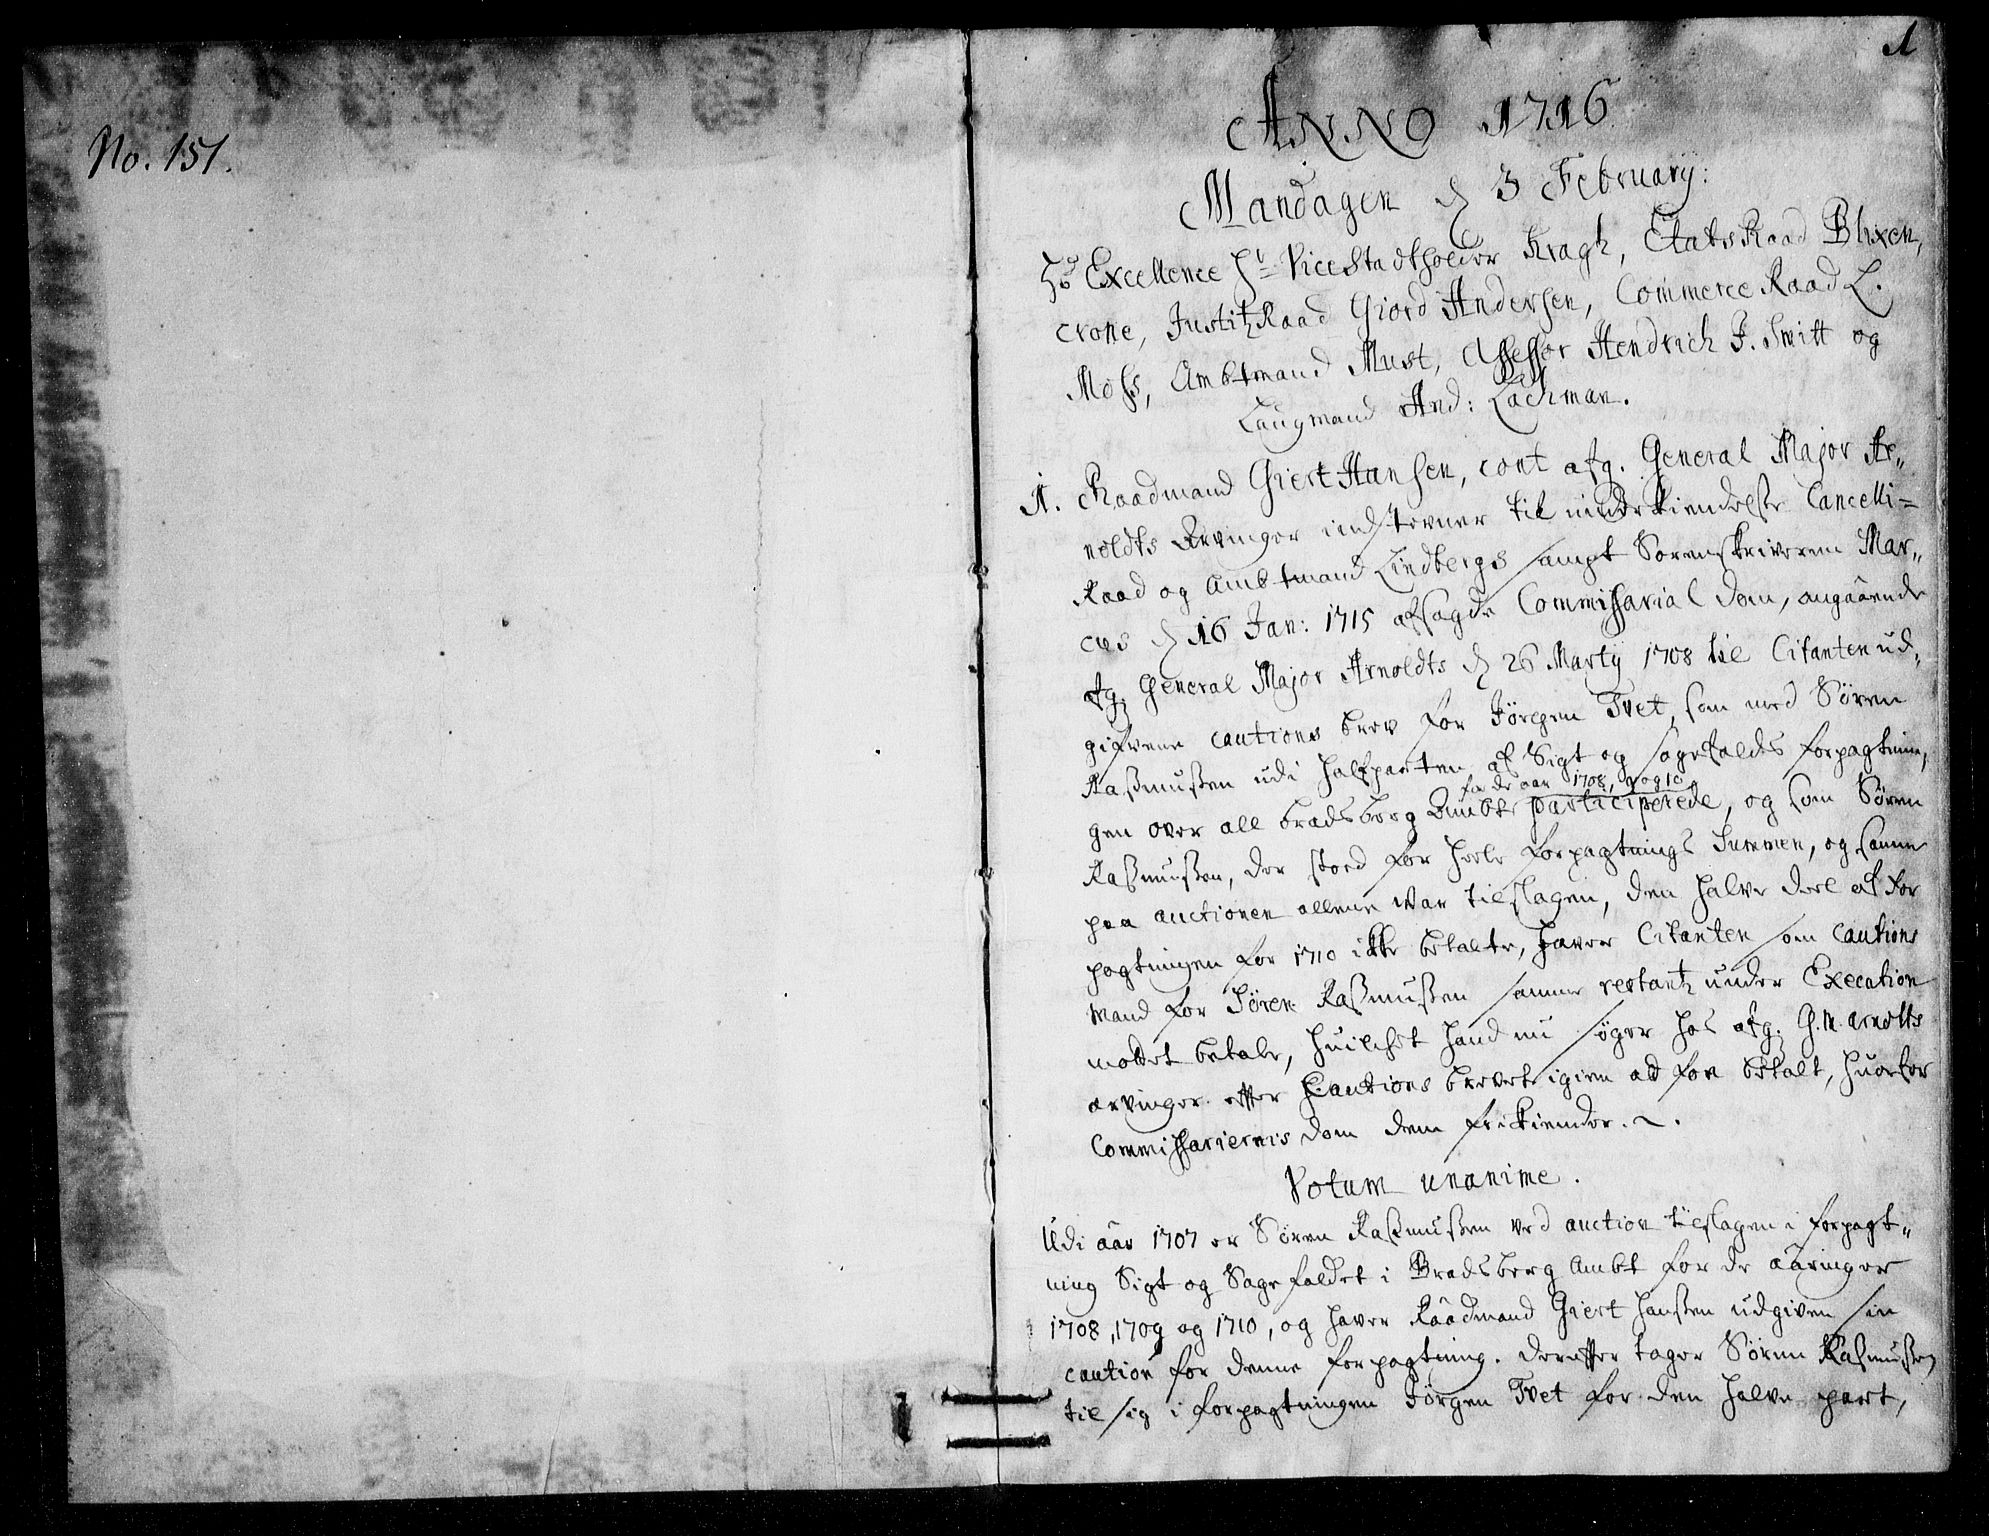 No. 151.
1
ANNO 1716
Mandagen d 3 February:
Hs Excellence Hr Vice Stadtholder Kragh, Etats Raad Blixen,
crone, Justitz Raad Giord Andersen, Commerce Raad L.
Moss, Ambtmand Must, Assessor Hendrich J. Smitt og
Laugmand And: Lachman.
1. Raadmand Giert Hansen, cont afg. General Major Ar„
noldts Arvinger indstevner til underkiendelse Cancelli=
Raad og Ambtmand Lindbergs sampt Sorenskriveren Mar„
cus d 16 Jan: 1715 afsagde Commissarial dom, angaaende
afg. General Major Arnoldts d 26 Martij 1708 til Citanten ud„
gifvene cautions brev for Jørgen Tvet, som med Sören
Rasmussen udi halfparten af Sigt og sagefalds forpagtnin„
for de aar 1708, 9 og 10
gen over all bradsberg Ambt participerede, og som Sören
Rasmussen, der stoed for heele forpagtnings Summen, og samme
paa auctionen allene var tilslagen, den halve deel af for
pagtningen for 1710 ikke betalte, haver Citanten som cautions
Mand for Sören Rasmussen samme restantz under Execution
motte betale, huilchet hand nu søger hos afg. G. M. Arnolts
arvinger effter Cautions brevet igien at faae betalt, huorfor
Commissariernis dom dem frikiender.
Votum unanime.
Udi aar 1707 er Sören Rasmussen ved auction tilslagen i forpagt„
ning Sigt og Sagefaldet i Bradsberg Ambt for de aaringer
1708, 1709 og 1710, og haver Raadmand Giert Hansen udgiven sin
caution for denne forpagtning. dereffter tager Sören Rasmussen
til sig i forpagtningen Jörgen Tvet for den halve part,